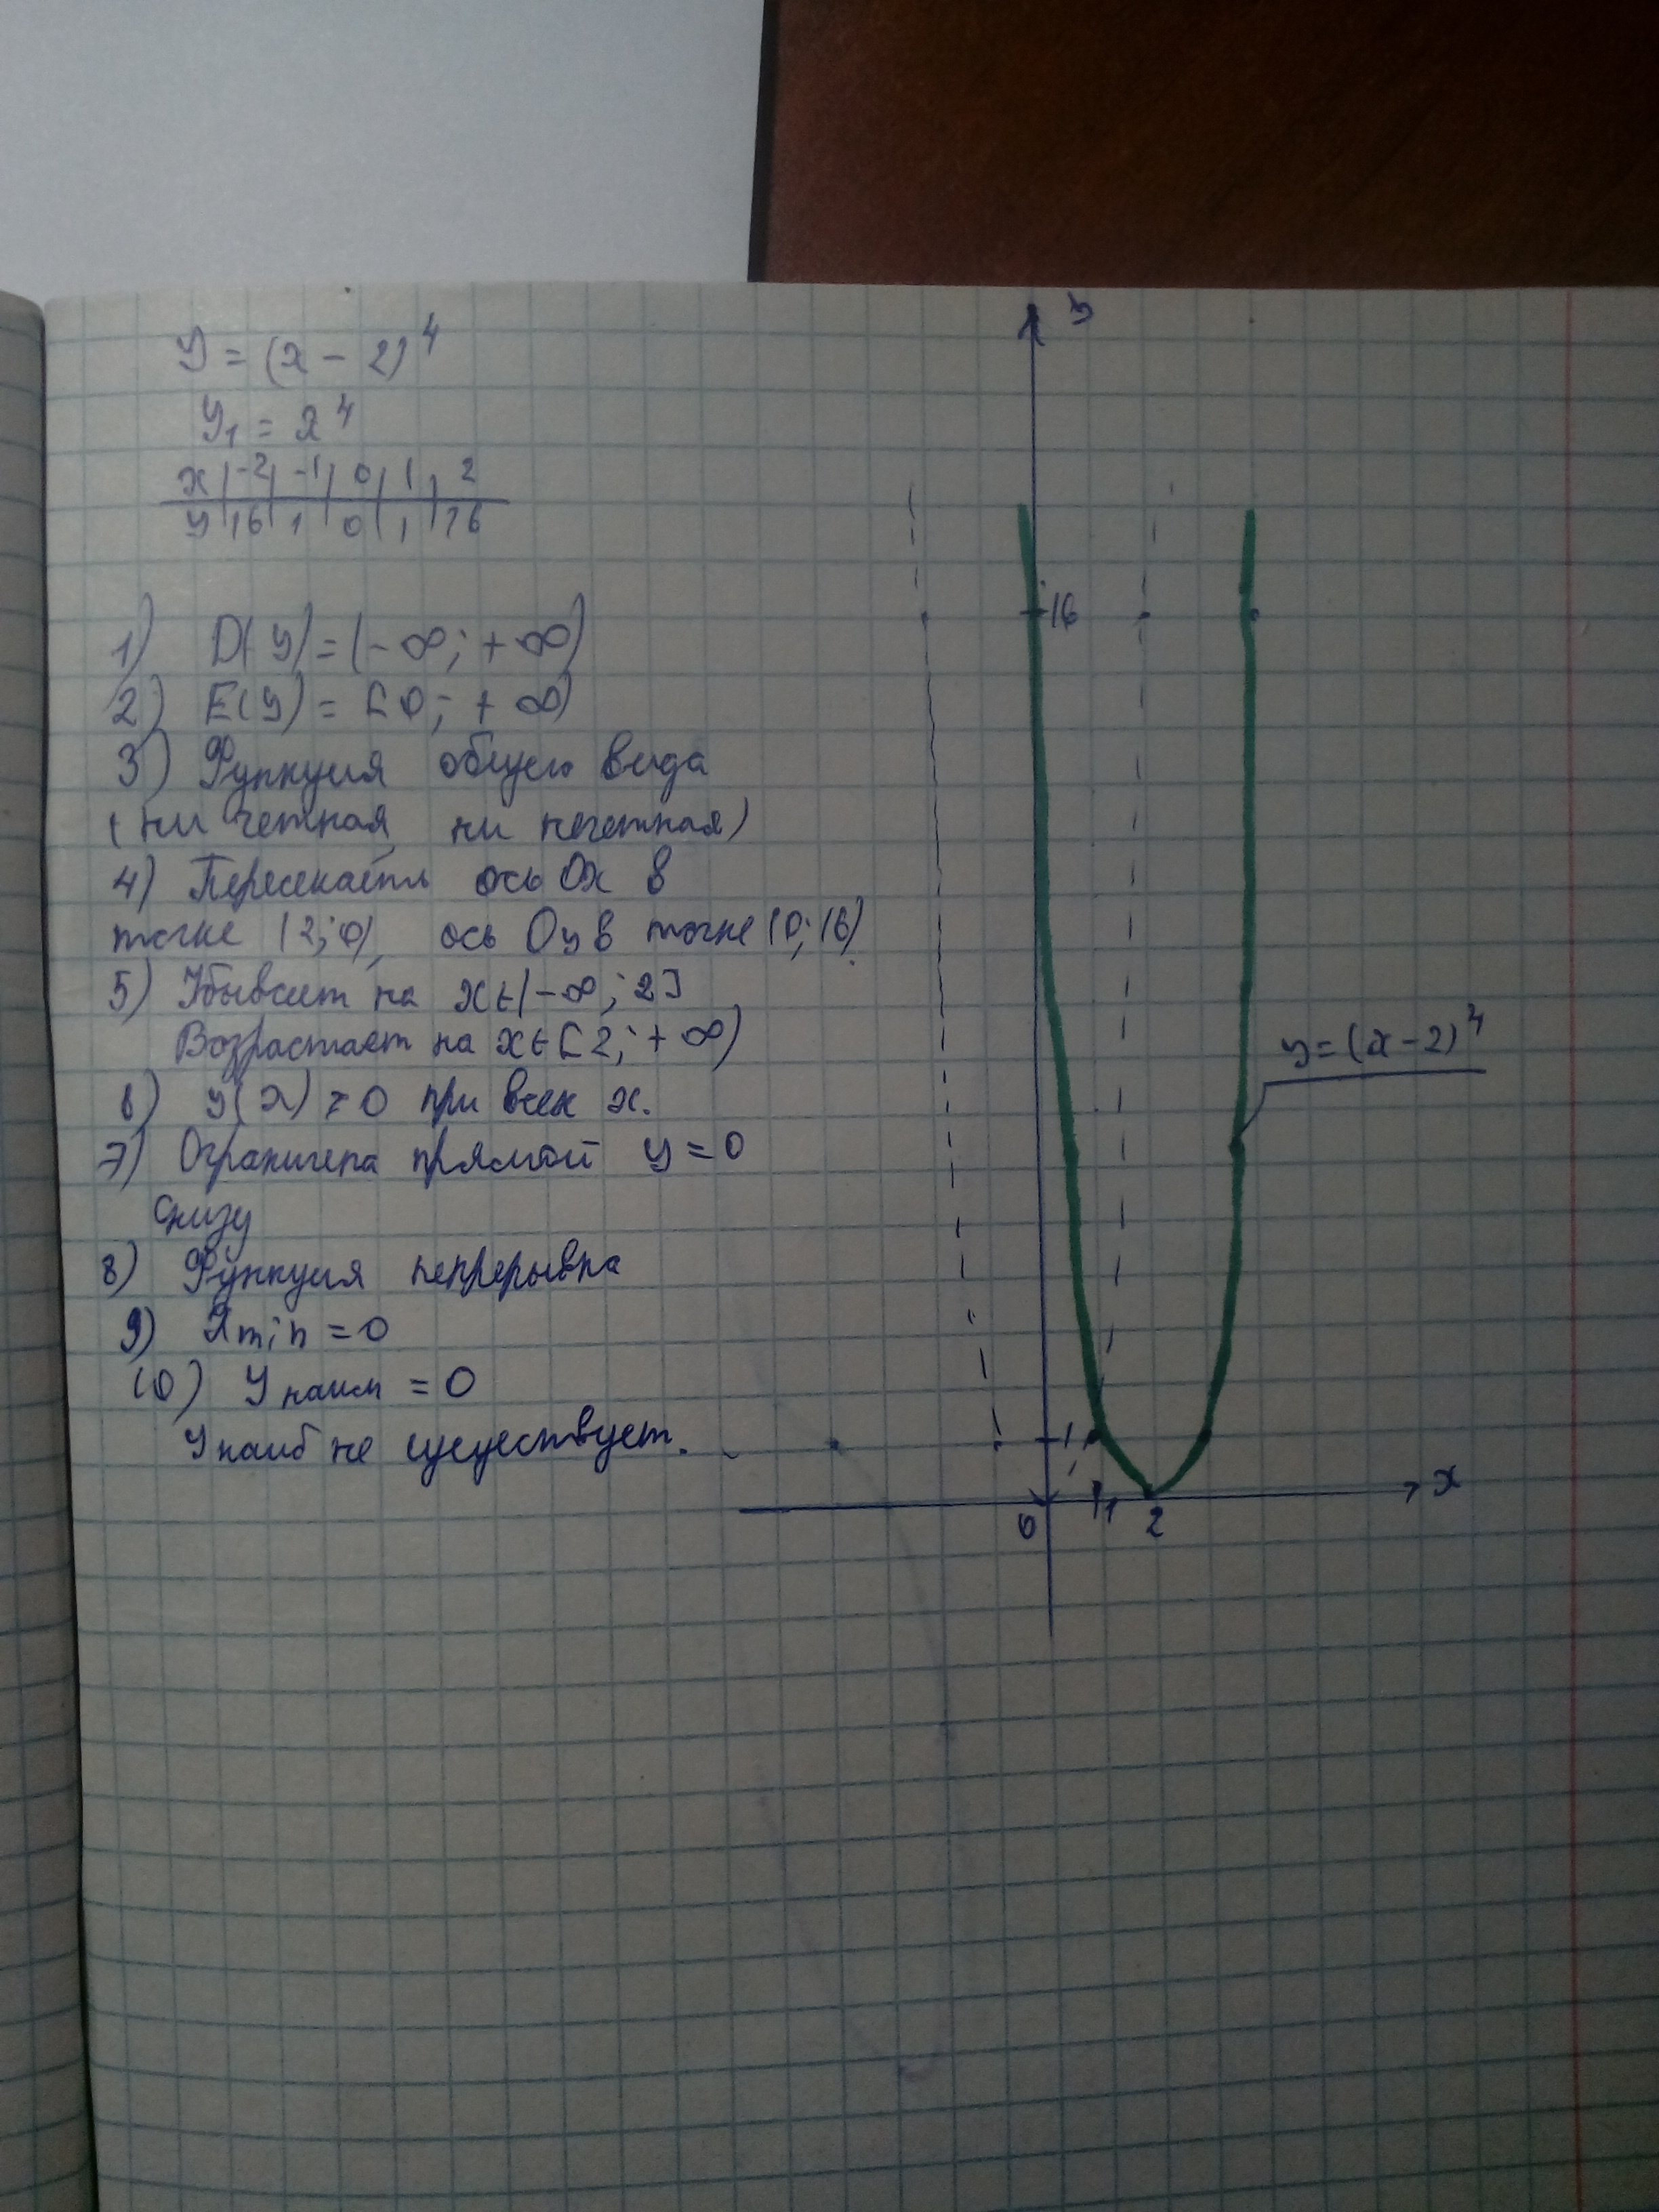 y = (x - 2)⁴
y₁ = x⁴
x | -2 | -1 | 0 | 1 | 2
y | 16 | 1 | 0 | 1 | 16
1) D(y) = (-∞; +∞)
2) E(y) = [0; +∞)
3) Функция общего вида
(ни четная, ни нечетная)
4) Пересекает ось Ox в
точке (2; 0), ось Oy в точке (0; 16).
5) Убывает на x∈(-∞; 2]
Возрастает на x∈[2; +∞)
6) y(x) ≥ 0 при всех x.
7) Ограничена прямой y = 0
снизу
8) Функция непрерывна
9) xmin = 0
10) y наим = 0
y наиб не существует.
y
16
y = (x - 2)⁴
1
x
0
1
2